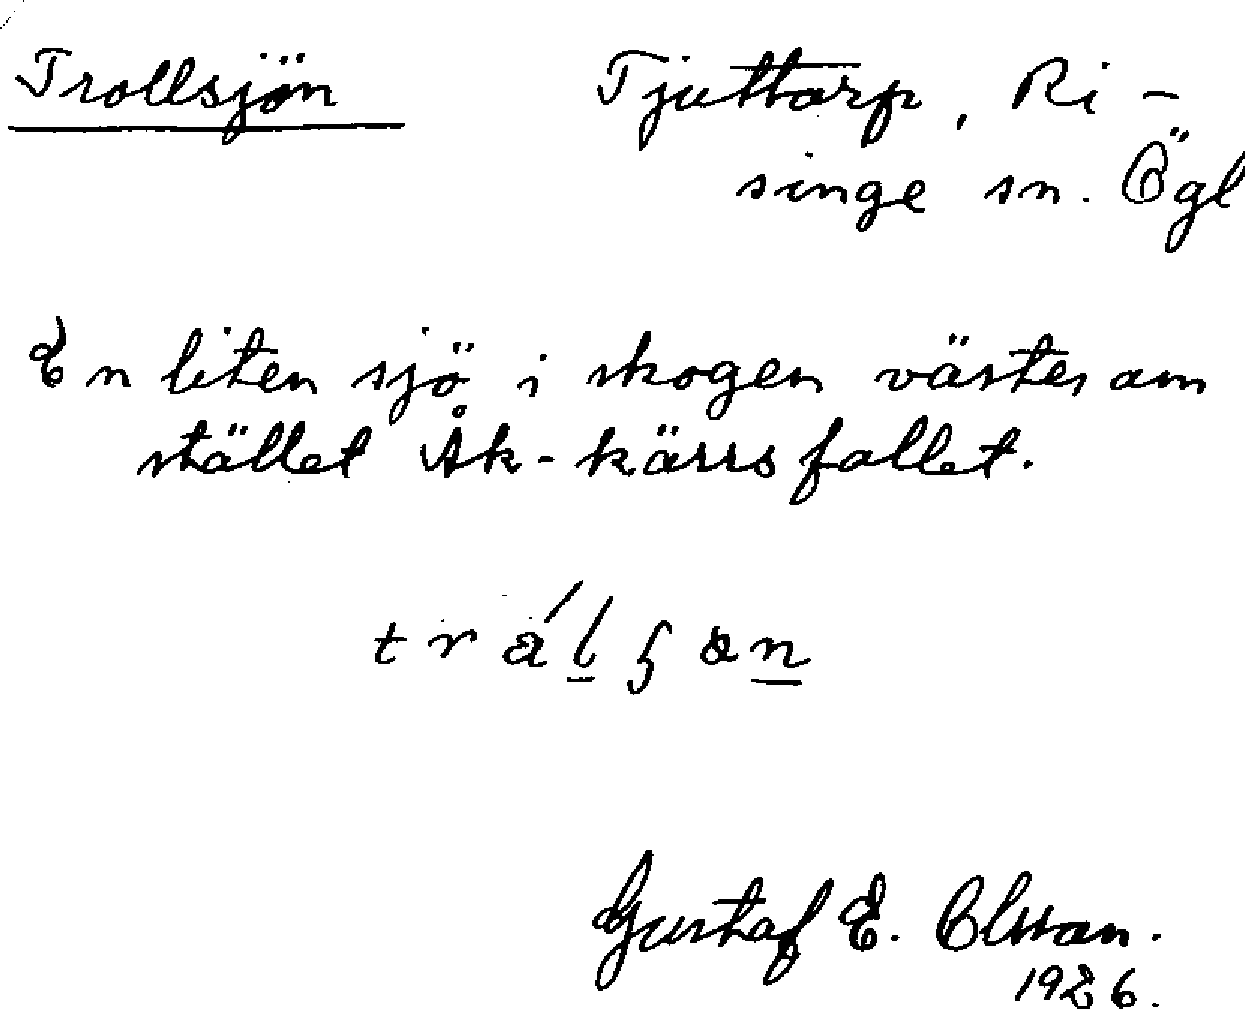 Trollsjön Tjuttorp, Ri-
singe sn. Ögl
En liten sjö i skogen väster om
stället Åk-kärrsfallet.
Gustaf E. Olsson.
1926.